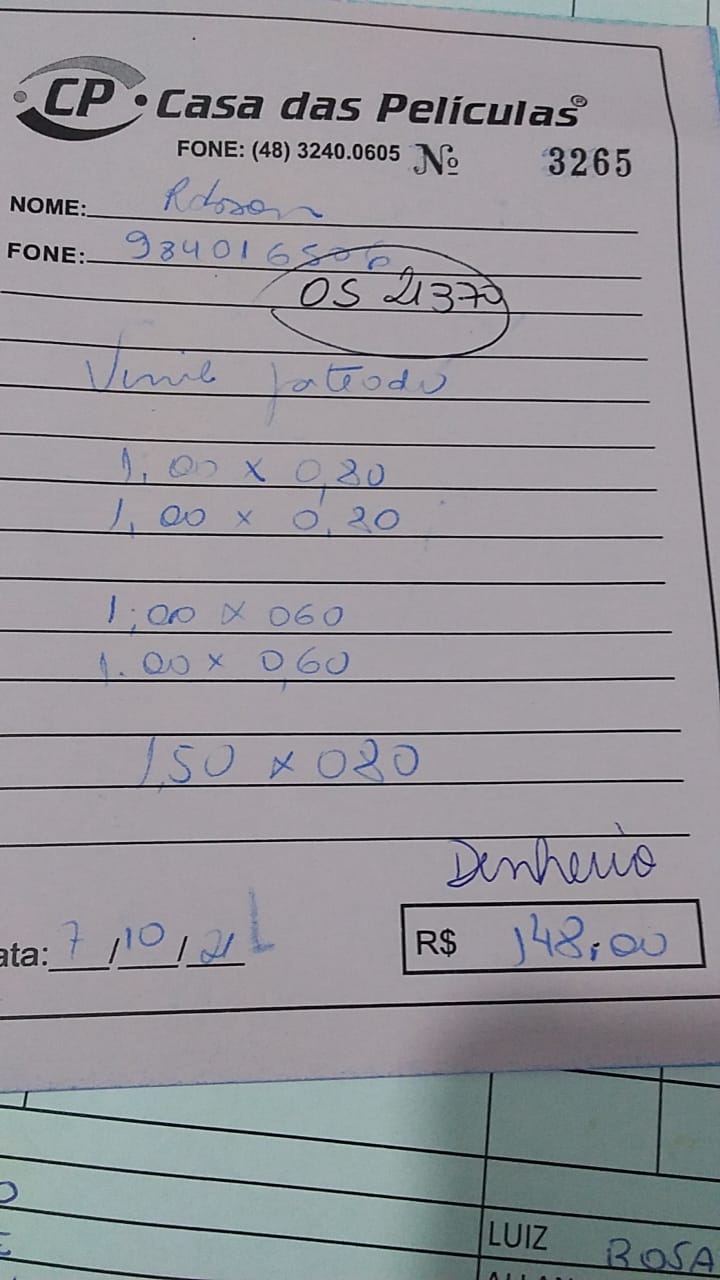 CP • Casa das Películas®
FONE: (48) 3240.0605 Nº 3265
NOME: Robson
FONE: 984016506
OS 21370
Vinil jateado
1,00 x 0,80
1,00 x 0,20
1,00 x 060
1.00 x 0,60
1,50 x 080
Dinheiro
ata: 7/10/21 R$ 148,00
LUIZ ROSA